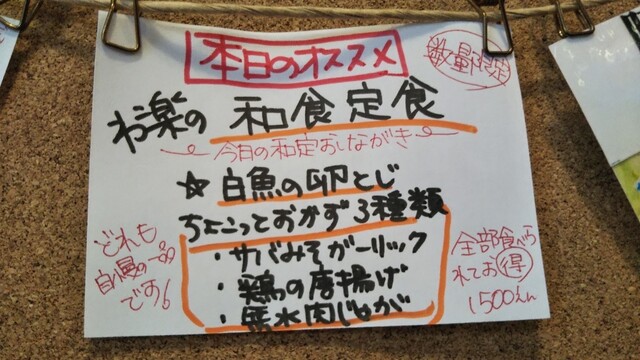 本日のオススメ
数量限定
わ楽の 和食定食
今日の和定おしながき
☆白魚の卵とじ
ちょこっとおかず3種類
・サバみそガーリック
・鶏の唐揚げ
・馬水肉じゃが
どれも
自慢の一品
です!
全部食べら
れてお得
1500えん